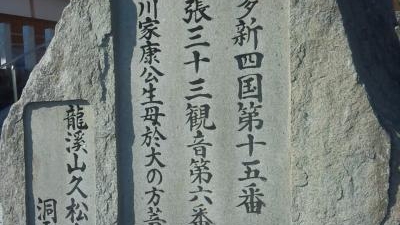 多新四国第十五番
張三十三観音第六番
川家康公生母於大の方菩
龍溪山久松
洞